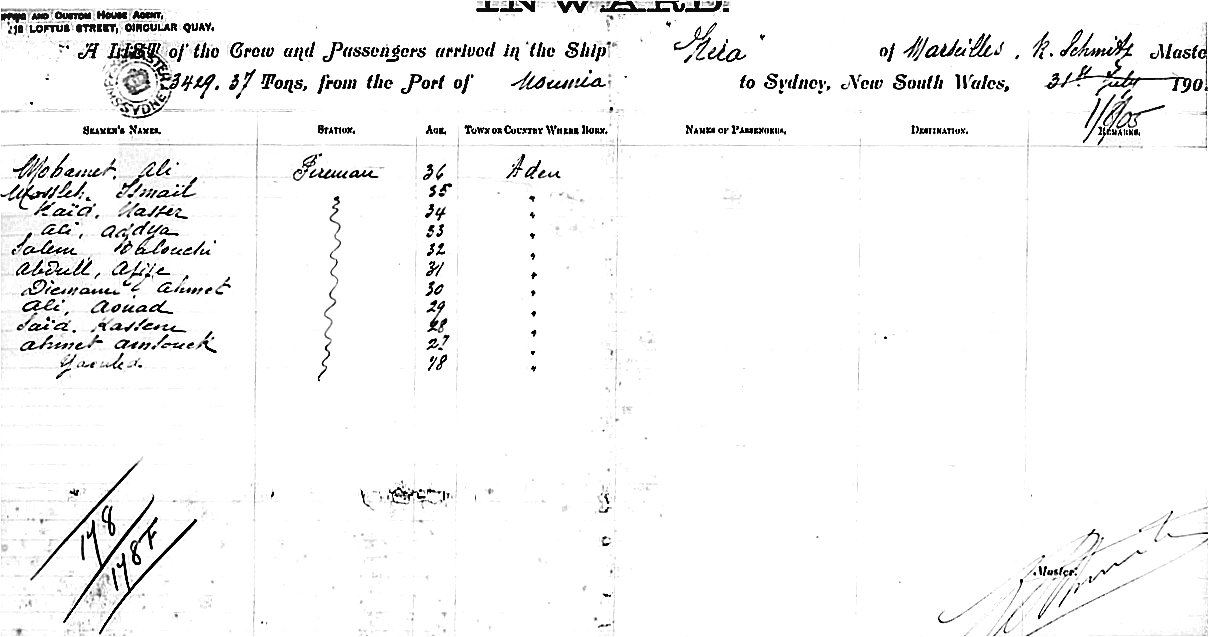 INWARD.
AND CUSTOM HOUSE AGENT,
LOFTUS STREET, CIRCULAR QUAY.
A LIST of the Crew and Passengers arrived in the Ship "Kéia" of Marseilles, R. Schmitz Maste
3429.37 Tons, from the Port of Noumia to Sydney, New South Wales, 31st July 190
1/8/05
SEAMEN'S NAMES. STATION. AGE. TOWN OR COUNTRY WHERE BORN. NAMES OF PASSENGERS. DESTINATION. REMARKS.
Mohamet. Ali Fireman 36 Aden
Mossleh. Ismail 35 "
Kaïd. Nasser 34 "
Ali, Addya 33 "
Salem Balouchi 32 "
Abdull, Afife 31 "
Ahmet 30 "
Ali, Aouad 29 "
Saïd. Kassem 28 "
Ahmet 27 "
18 "
178
178F
Master.